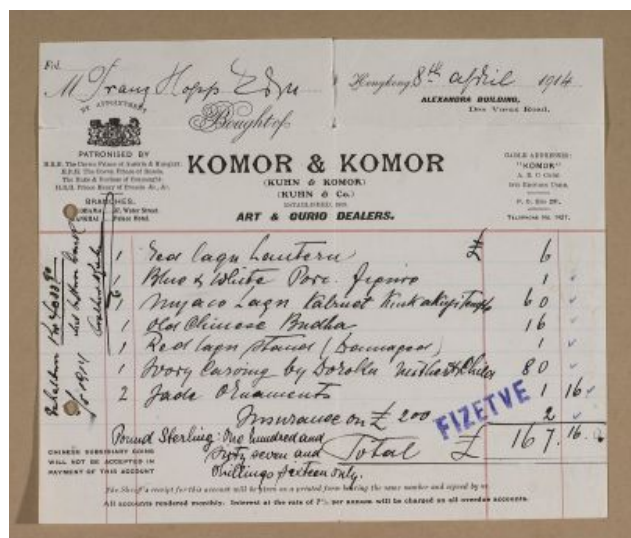 M Franz Hopp Esqre
Hongkong 8th April 1914
ALEXANDRA BUILDING,
Des Voeux Road.
BY APPOINTMENT
Bought of
PATRONISED BY
H.R.H. Prince Henry of Prussia &c., &c.
BRANCHES.
KOMOR & KOMOR
(KUHN & KOMOR)
(KUHN & Co.)
ART & CURIO DEALERS.
CABLE ADDRESSES:
"KOMOR"
A. B. C. Code
5th Edition Used.
TELEPHONE No.
1 Red Laqu Lantern 6
1 Blue & White Porc. figure 1
1 Laqu Kabinet Kinkakuji Temple 60
1 Old Chinese Budha 16
1 Red laqu stand (Damaged) 1
1 Ivory Carving by Mother & Child 80
2 Jade Ornaments 1 16
Insurance on £ 200 2
FIZETVE
Pound Sterling: One hundred and
sixty seven and
shillings sixteen only.
Total £ 167.16.
CHINESE SUBSIDIARY COINS
WILL NOT BE ACCEPTED IN
PAYMENT OF THIS ACCOUNT
receipt for this account will be given on a printed form bearing the same number and signed by us.
All accounts rendered monthly. Interest at the rate of 7% per annum will be charged on all overdue accounts.